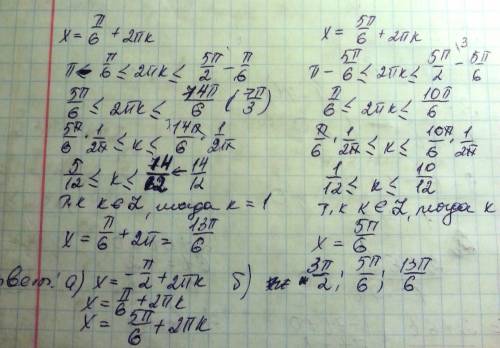 x = π/6 + 2πk
π - π/6 ≤ 2πk ≤ 5π/2 - π/6
5π/6 ≤ 2πk ≤ 14π/6 (7π/3)
5π/6 · 1/2π ≤ k ≤ 14π/6 · 1/2π
5/12 ≤ k ≤ 14/12 ← 14/12
т.к k∈Z, тогда k = 1
x = π/6 + 2π = 13π/6
x = 5π/6 + 2πk
π - 5π/6 ≤ 2πk ≤ 5π/2 - 5π/6
π/6 ≤ 2πk ≤ 10π/6
π/6 · 1/2π ≤ k ≤ 10π/6 · 1/2π
1/12 ≤ k ≤ 10/12
т.к k∈Z, тогда k
x = 5π/6
твет: а) x = -π/2 + 2πk
x = π/6 + 2πk
x = 5π/6 + 2πk
б) 3π/2; 5π/6; 13π/6